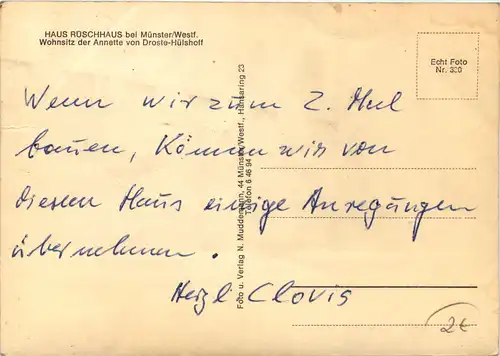 HAUS RÜSCHHAUS bei Münster/Westf.
Wohnsitz der Annette von Droste-Hülshoff
Echt Foto
Nr. 320
Wenn wir zum 2. Mal
bauen, können wir von
diesem Haus einige Anregungen
übernehmen.
Herzl. Clovis
Foto u. Verlag N. Muddemann, 44 Münster/Westf., Hansaring 23
Telefon 6 46 94
2€